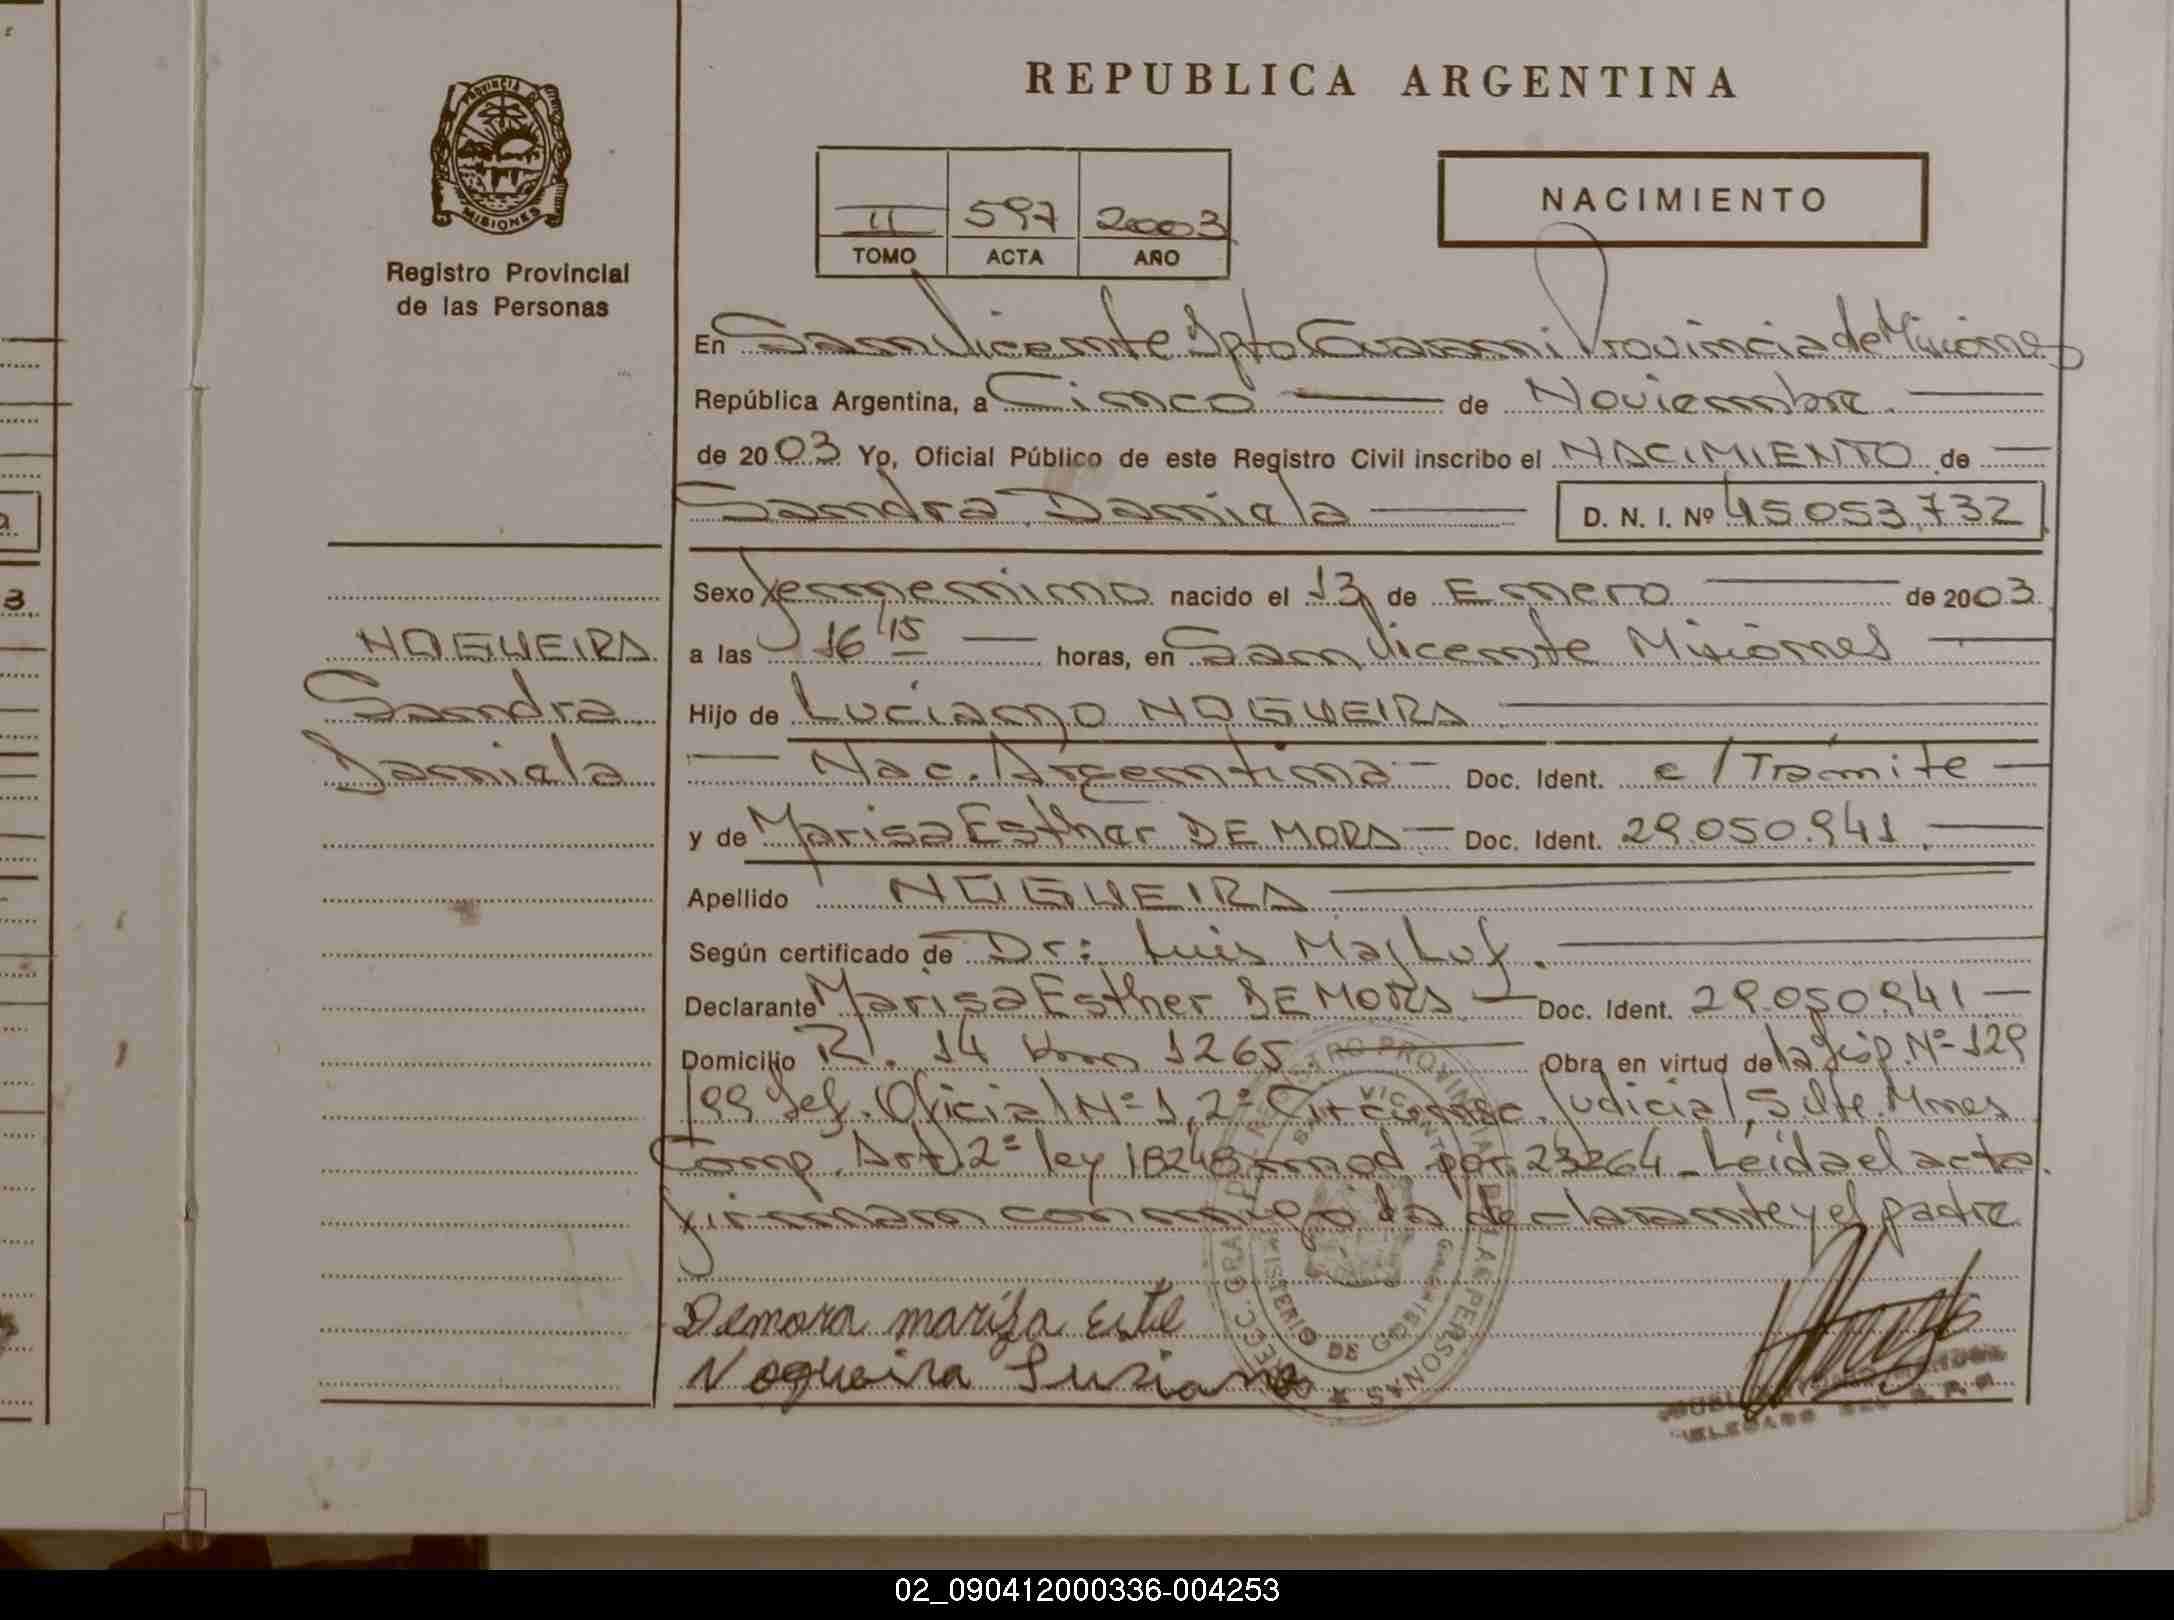 PROVINCIA DE
MISIONES
Registro Provincial
de las Personas
REPUBLICA ARGENTINA
II 597 2003
TOMO ACTA AÑO
NACIMIENTO
En San Vicente Dpto Guarani Provincia de Misiones
República Argentina, a Cinco de Noviembre
de 2003 Yo, Oficial Público de este Registro Civil inscribo el NACIMIENTO de
Sandra Daniela D. N. I. Nº 45.053.732
Sexo femenino nacido el 13 de Enero de 2003
a las 16'15 horas, en San Vicente Misiones
Hijo de Luciano NOGUEIRA
Nac. Argentina Doc. Ident. e/Trámite
y de Marisa Esther DE MORA Doc. Ident. 29.050.941
Apellido NOGUEIRA
Según certificado de Dr: Luis Majluf.
Declarante Marisa Esther DE MORA Doc. Ident. 29.050.941
Domicilio R. 14 Km 1265 Obra en virtud de la Disp. Nº 129
/99 Def. Oficial Nº 1, 2º Circunsc. Judicial, S. Vte. Mnes
Comp. Art. 2º ley 18248 mod por 23264 - Leída el acta.
firman conmigo la declarante y el padre
Demora mariza Este
Nogueira Lusiano
NOGUEIRA
Sandra
Daniela
REGISTRO PROVINCIAL DE LAS PERSONAS
SAN VICENTE
MINISTERIO DE GOBIERNO
02_090412000336-004253